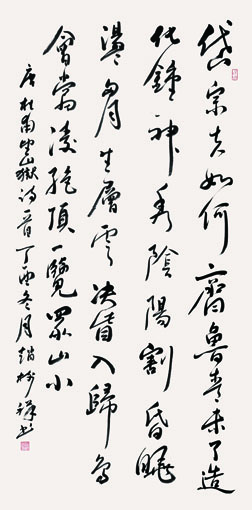 岱宗夫如何齊魯青未了造
化鍾神秀陰陽割昏曉
盪胷生層雲決眥入歸鳥
會當凌絕頂一覽眾山小
唐杜甫望嶽詩一首丁酉冬月趙